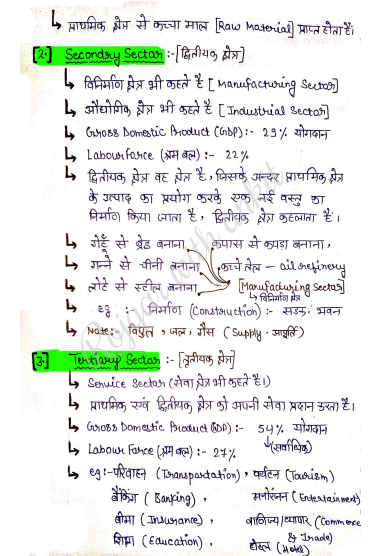 ↳ प्राथमिक क्षेत्र से कच्चा माल [Raw Material] प्राप्त होता है।
2. Secondry Sector :- [द्वितीयक क्षेत्र]
↳ विनिर्माण क्षेत्र भी कहते है [Manufacturing Sector]
↳ औद्योगिक क्षेत्र भी कहते है [Industrial Sector]
↳ Gross Domestic Product (GDP) :- 29% योगदान
↳ Labour Farce (श्रम बल) :- 22%
↳ द्वितीयक क्षेत्र वह क्षेत्र है, जिसके अन्दर प्राथमिक क्षेत्र
के उत्पाद का प्रयोग करके एक नई वस्तु का
निर्माण किया जाता है, द्वितीयक क्षेत्र कहलाता है।
↳ गेहूँ से ब्रेड बनाना, कपास से कपड़ा बनाना,
↳ गन्ने से चीनी बनाना, कच्चे तेल – oil refinery
↳ लोहे से स्टील बनाना [Manufacturing Sector]
↳ विनिर्माण क्षेत्र
↳ eg :- निर्माण (Construction) :- सडक, भवन
↳ Note:- विद्युत, जल, गैस (Supply - आपूर्ति)
3. Tertiary Sector :- [तृतीयक क्षेत्र]
↳ Service Sector (सेवा क्षेत्र भी कहते है।)
↳ प्राथमिक एवं द्वितीयक क्षेत्र को अपनी सेवा प्रदान करता है।
↳ Gross Domestic Product (GDP) :- 54% योगदान
↳ Labour Farce (श्रम बल) :- 27% (सर्वाधिक)
↳ eg:- परिवाहन (Transportation), पर्यटन (Tourism)
बैंकिंग (Banking), मनोरंजन (Entertainment)
बीमा (Insurance), वाणिज्य/व्यापार (Commerce
& Trade)
शिक्षा (Education), होटल (Hotel)